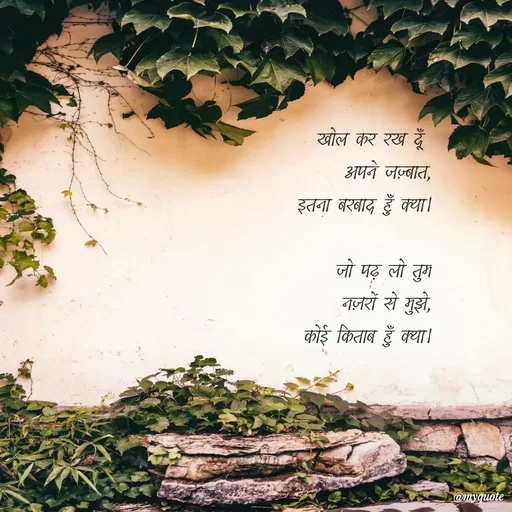 खोल कर रख दूँ
अपने जज़्बात,
इतना बरबाद हूँ क्या।
जो पढ़ लो तुम
नज़रों से मुझे,
कोई किताब हूँ क्या।
@myquote